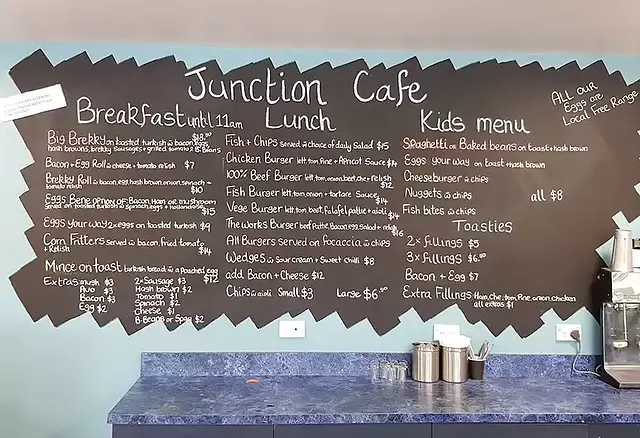 Junction Cafe
ALL OUR
Eggs are
Local Free Range
Breakfast until 11am
Big Brekky on toasted turkish w bacon, eggs, $18.50
hash browns, brekky sausages + grilled tomato & B. Beans
Bacon + Egg Roll w cheese + tomato relish $7
Brekky Roll w bacon, egg, hash brown, onion, spinach +
tomato relish $10
Eggs Bene option of: Bacon, Ham or mushroom
served on toasted turkish w spinach, eggs + hollandaise
$15
Eggs your way 2x eggs on toasted turkish $9
Corn Fritters served w bacon, fried tomato
+ Relish $14
Mince on toast turkish bread w a poached egg
$12
Extras: mush $3
Avo $3
Bacon $3
Egg $2
2x Sausage $3
Hash brown $2
Tomato $1
Spinach $2
Cheese $1
B-Beans or Spag $2
Lunch
Fish + Chips served w choice of daily Salad $15
Chicken Burger lett, tom, Pine + Apricot Sauce $14
100% Beef Burger lett, tom, onion, beet, che + relish
$12
Fish Burger lett, tom, onion + tartare Sauce
$14
Vege Burger lett, tom, beet, Falafel pattie + aioli
$14
The Works Burger beef Pattie, Bacon, egg, Salad + relish
$16
All Burgers served on Focaccia w chips
Wedges w Sour cream + Sweet Chilli $8
add Bacon + Cheese $12
Chips w aioli Small $3 Large $6.50
Kids menu
Spaghetti or Baked beans on toast + hash brown
Eggs your way on toast + hash brown
Cheeseburger w chips
Nuggets w chips all $8
Fish bites w chips
Toasties
2x fillings $5
3x fillings $6.50
Bacon + Egg $7
Extra Fillings Ham, Che, tom, Pine, onion, chicken
all extras $1